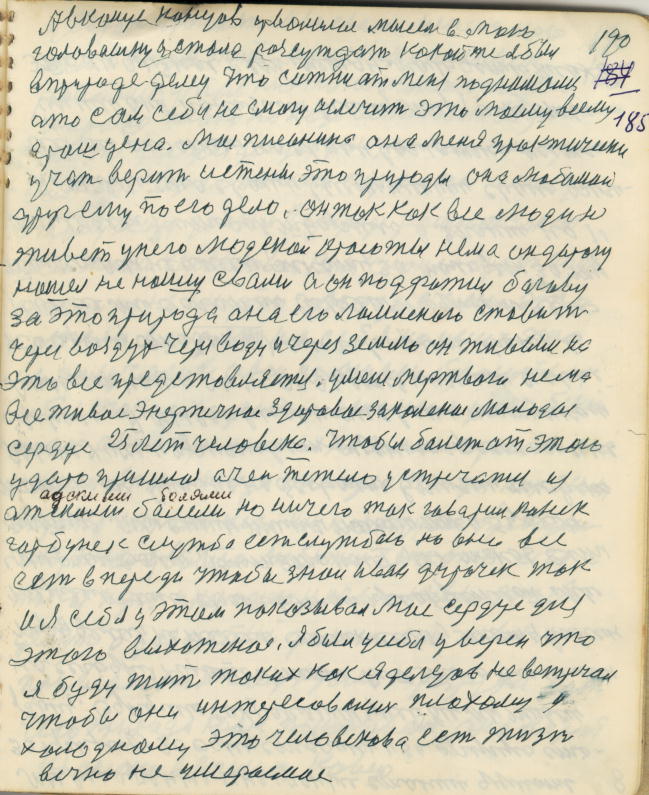 А в конце концов ивоился мысел в мою
головашку я стала розсуждат какойтея был
в природе делец что сотни от меня поднимали
190
184
185
а то сам себя не смогу облечит это моему всему
грош цена. Мое писания она меня практически
учат верит истене это природа она любимой
другему по его дело. он так как все люди н
живет у него людской красоты нема он дорогу
нашел не нашу с вами а он поддражил богову
за это природа она его ломленого ставит
через воздух через воду и через землю он живыи на
это все представляется. умеш мертвого нема
все живое энергичное здоровое закаленое молодое
сердце 25 лет человека. Чтобы болет от этого
удара пришлос очен тежело устречатся из
адскими болями
атскими болеми но ничего так говарил конек
горбунек служба ест службою но оно все
ест впереди чтобы знал иван дурачек так
и я себя у этом показывал мое сердце для
этого выхоженое. Я был усебя уверен что
я буду жит таких как я делцов не встричал
чтобы они интересовалис плохому и
холодному это человекова ест жизн
вечно не умераемае